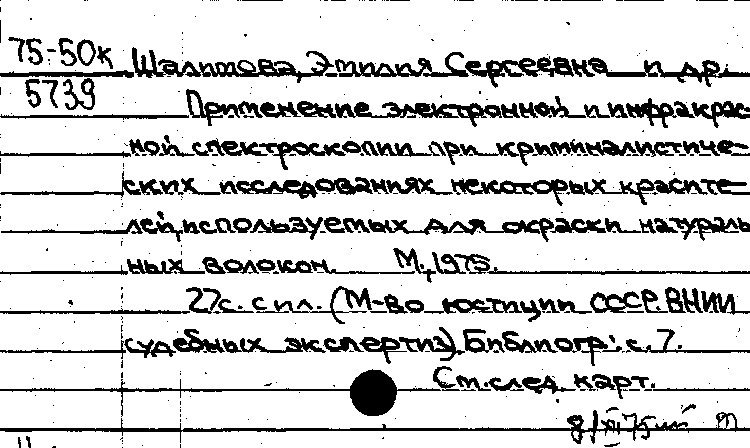 75-50к Шалимова, Эмилия Сергеевна и др.
5739 Применение электронной и инфракрас-
ной спектроскопии при криминалистиче-
ских исследованиях некоторых красите-
лей, используемых для окраски натураль-
ных волокон. М., 1975.
27с. с ил. (М-во юстиции СССР. ВНИИ
судебных экспертиз). Библиогр.: с. 7.
См. след. карт.